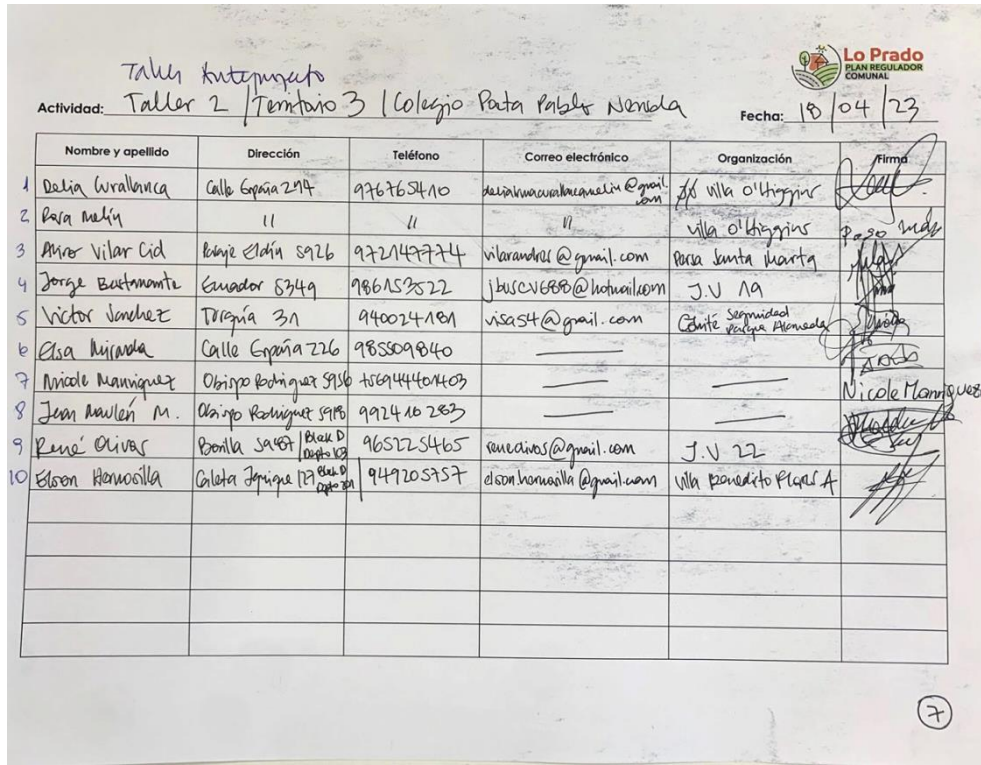 Lo Prado
PLAN REGULADOR
COMUNAL
Taller Anteproyecto
Actividad: Taller 2 / Territorio 3 / Colegio Poeta Pablo Neruda Fecha: 18/04/23
Nombre y apellido Dirección Teléfono Correo electrónico Organización Firma
1 Delia Curallanca Calle España 274 976765410 villa O'Higgins
2 Rosa Melin " " " villa O'Higgins Rosa
3 Vilar Cid Pasaje 5926 972147774 vilarandres@gmail.com Santa Marta
4 Jorge Bustamante Ecuador 5349 986153522 jbuscv688@hotmail.com J.V 19
5 Victor Sanchez Turquía 31 940024181 visa54@gmail.com Comité seguridad Parque Alameda
6 Elsa Miranda Calle España 226 985509840 —
7 Nicole Manriquez Obispo Rodriguez 5956 +56944401403 — — Nicole Manriquez
8 Juan Maulén M. Obispo Rodriguez 5918 992416283 — —
9 René Olivos Bonilla 5987 Block D Depto 103 965225465 J.V 22
10 Elson Hermosilla Caleta 127 Block D Depto 201 949205757 elsonhermosilla@gmail.com villa A
7